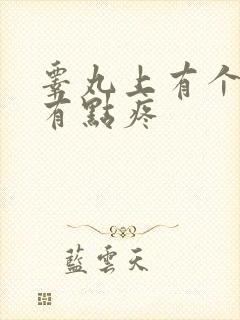 睾丸上有个
有點疼
藍雲天